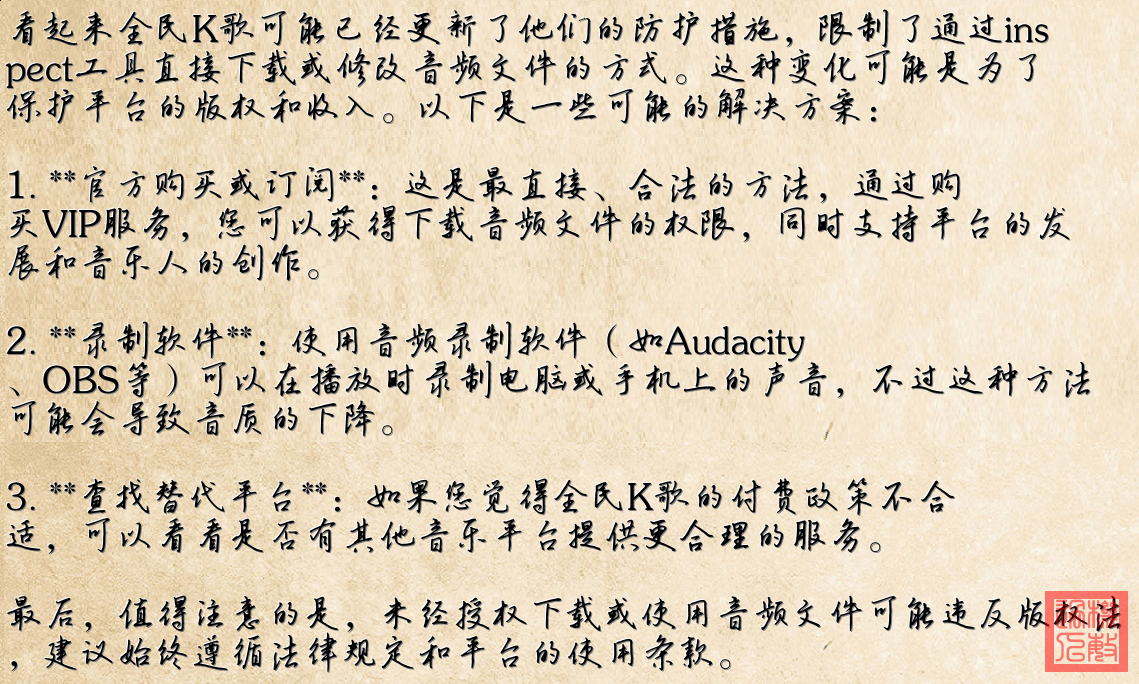 看起来全民K歌可能已经更新了他们的防护措施，限制了通过ins
pect工具直接下载或修改音频文件的方式。这种变化可能是为了
保护平台的版权和收入。以下是一些可能的解决方案：
1. **官方购买或订阅**：这是最直接、合法的方法，通过购
买VIP服务，您可以获得下载音频文件的权限，同时支持平台的发
展和音乐人的创作。
2. **录制软件**：使用音频录制软件（如Audacity
、OBS等）可以在播放时录制电脑或手机上的声音，不过这种方法
可能会导致音质的下降。
3. **查找替代平台**：如果您觉得全民K歌的付费政策不合
适，可以看看是否有其他音乐平台提供更合理的服务。
最后，值得注意的是，未经授权下载或使用音频文件可能违反版权法
，建议始终遵循法律规定和平台的使用条款。